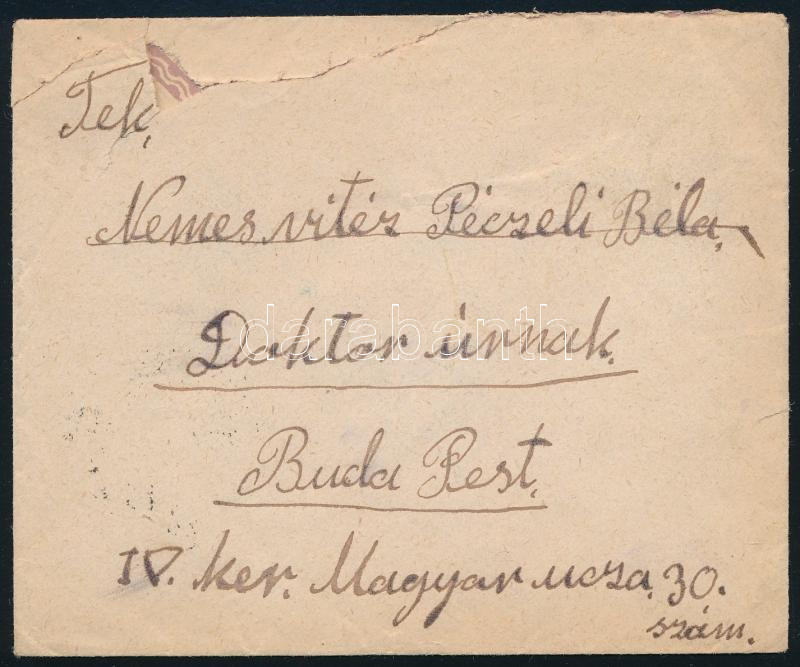 Tek.
Nemes vitéz Péczeli Béla,
Doktor úrnak.
darabanth.com
Buda Pest.
IV. ker. Magyar ucza. 30.
szám.